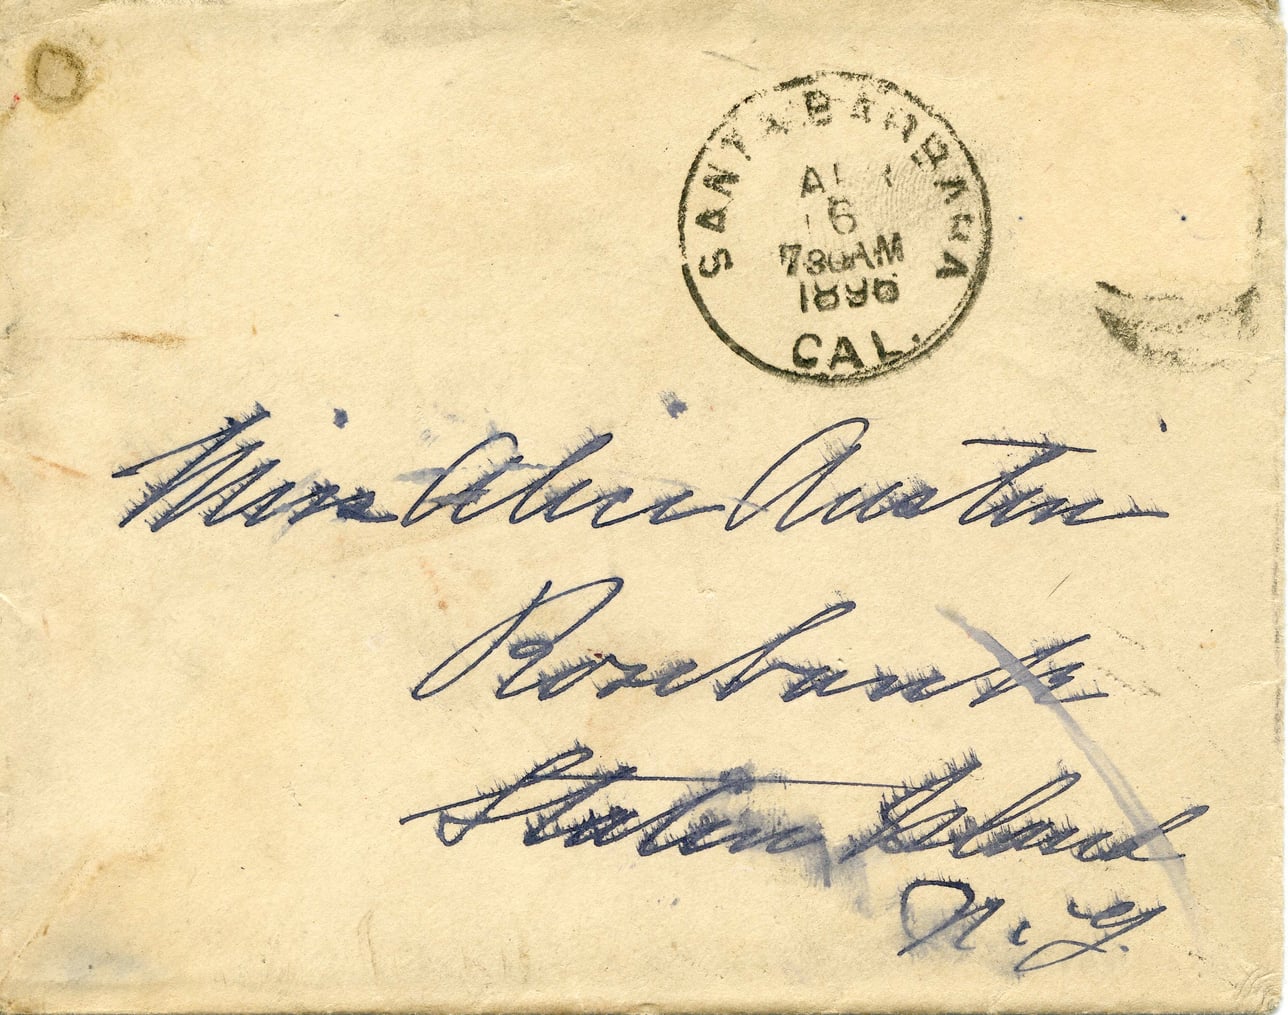 SANTA BARBARA
6
730AM
1896
CAL.
Miss Alice Austen
Rosebank
Staten Island
N.Y.